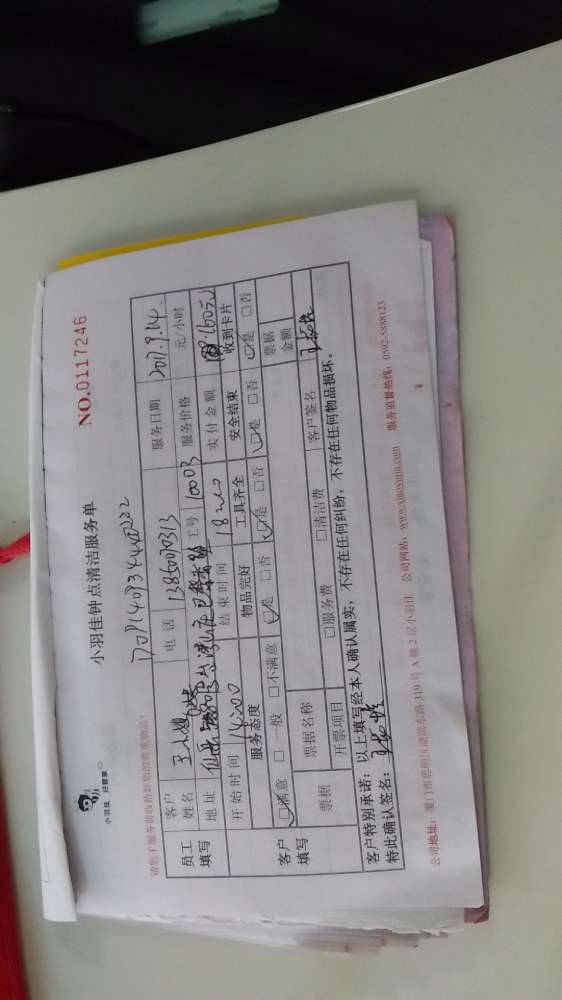 小羽佳 好管家
小羽佳钟点清洁服务单
NO.0117246
请您于服务前收拾好您的贵重物品!
员工填写 客户 电话 服务日期 2017.9.14
姓名 工号 10003 服务价格 元/小时
地址 实付金额 160元
开始时间 14:00 结束时间 18:00
客户填写 服务态度 物品完好 工具齐全 安全结束 收到卡片
☑满意 □一般 □不满意 ☑是 □否 ☑是 □否 ☑是 □否 ☑是 □否
票据 票据名称 票据金额
开票项目 □服务费 □清洁费 客户签名
客户特别承诺:以上填写经本人确认属实,不存在任何纠纷,不存在任何物品损坏。
特此确认签名:
公司地址:厦门市思明区湖滨东路 319 号 A 幢 2 层小羽佳 公司网站:www.xiaoyujia.com 服务监督热线:0592-5888123